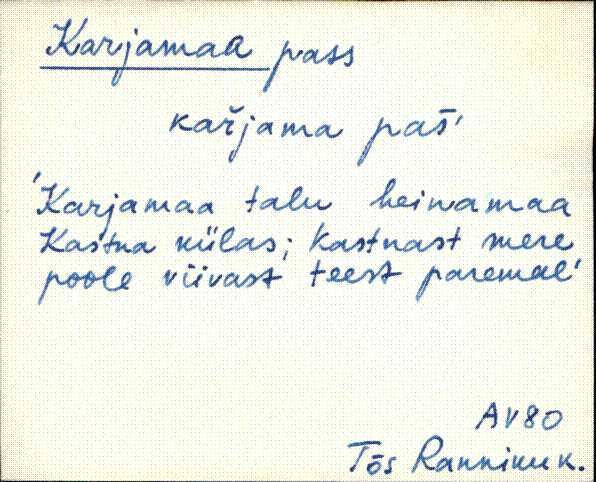 Karjamaa pass
kar̆jama pas̄'
'Karjamaa talu heinamaa
Kastna külas; Kastnast mere
poole viivast teest paremal'
AV80
Tõs Rannikuk.